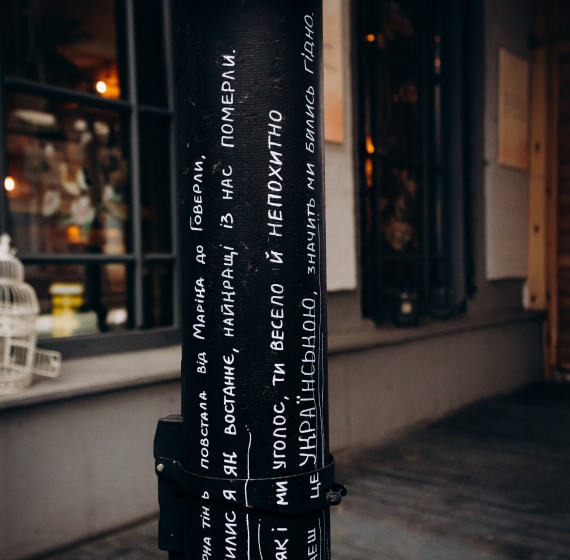 рна тінь повстала від Маріка до Говерли,
илися як востаннє, найкращі із нас померли.
як і ми уголос, ти весело й непохитно
еш це українською, значить ми бились гідно.